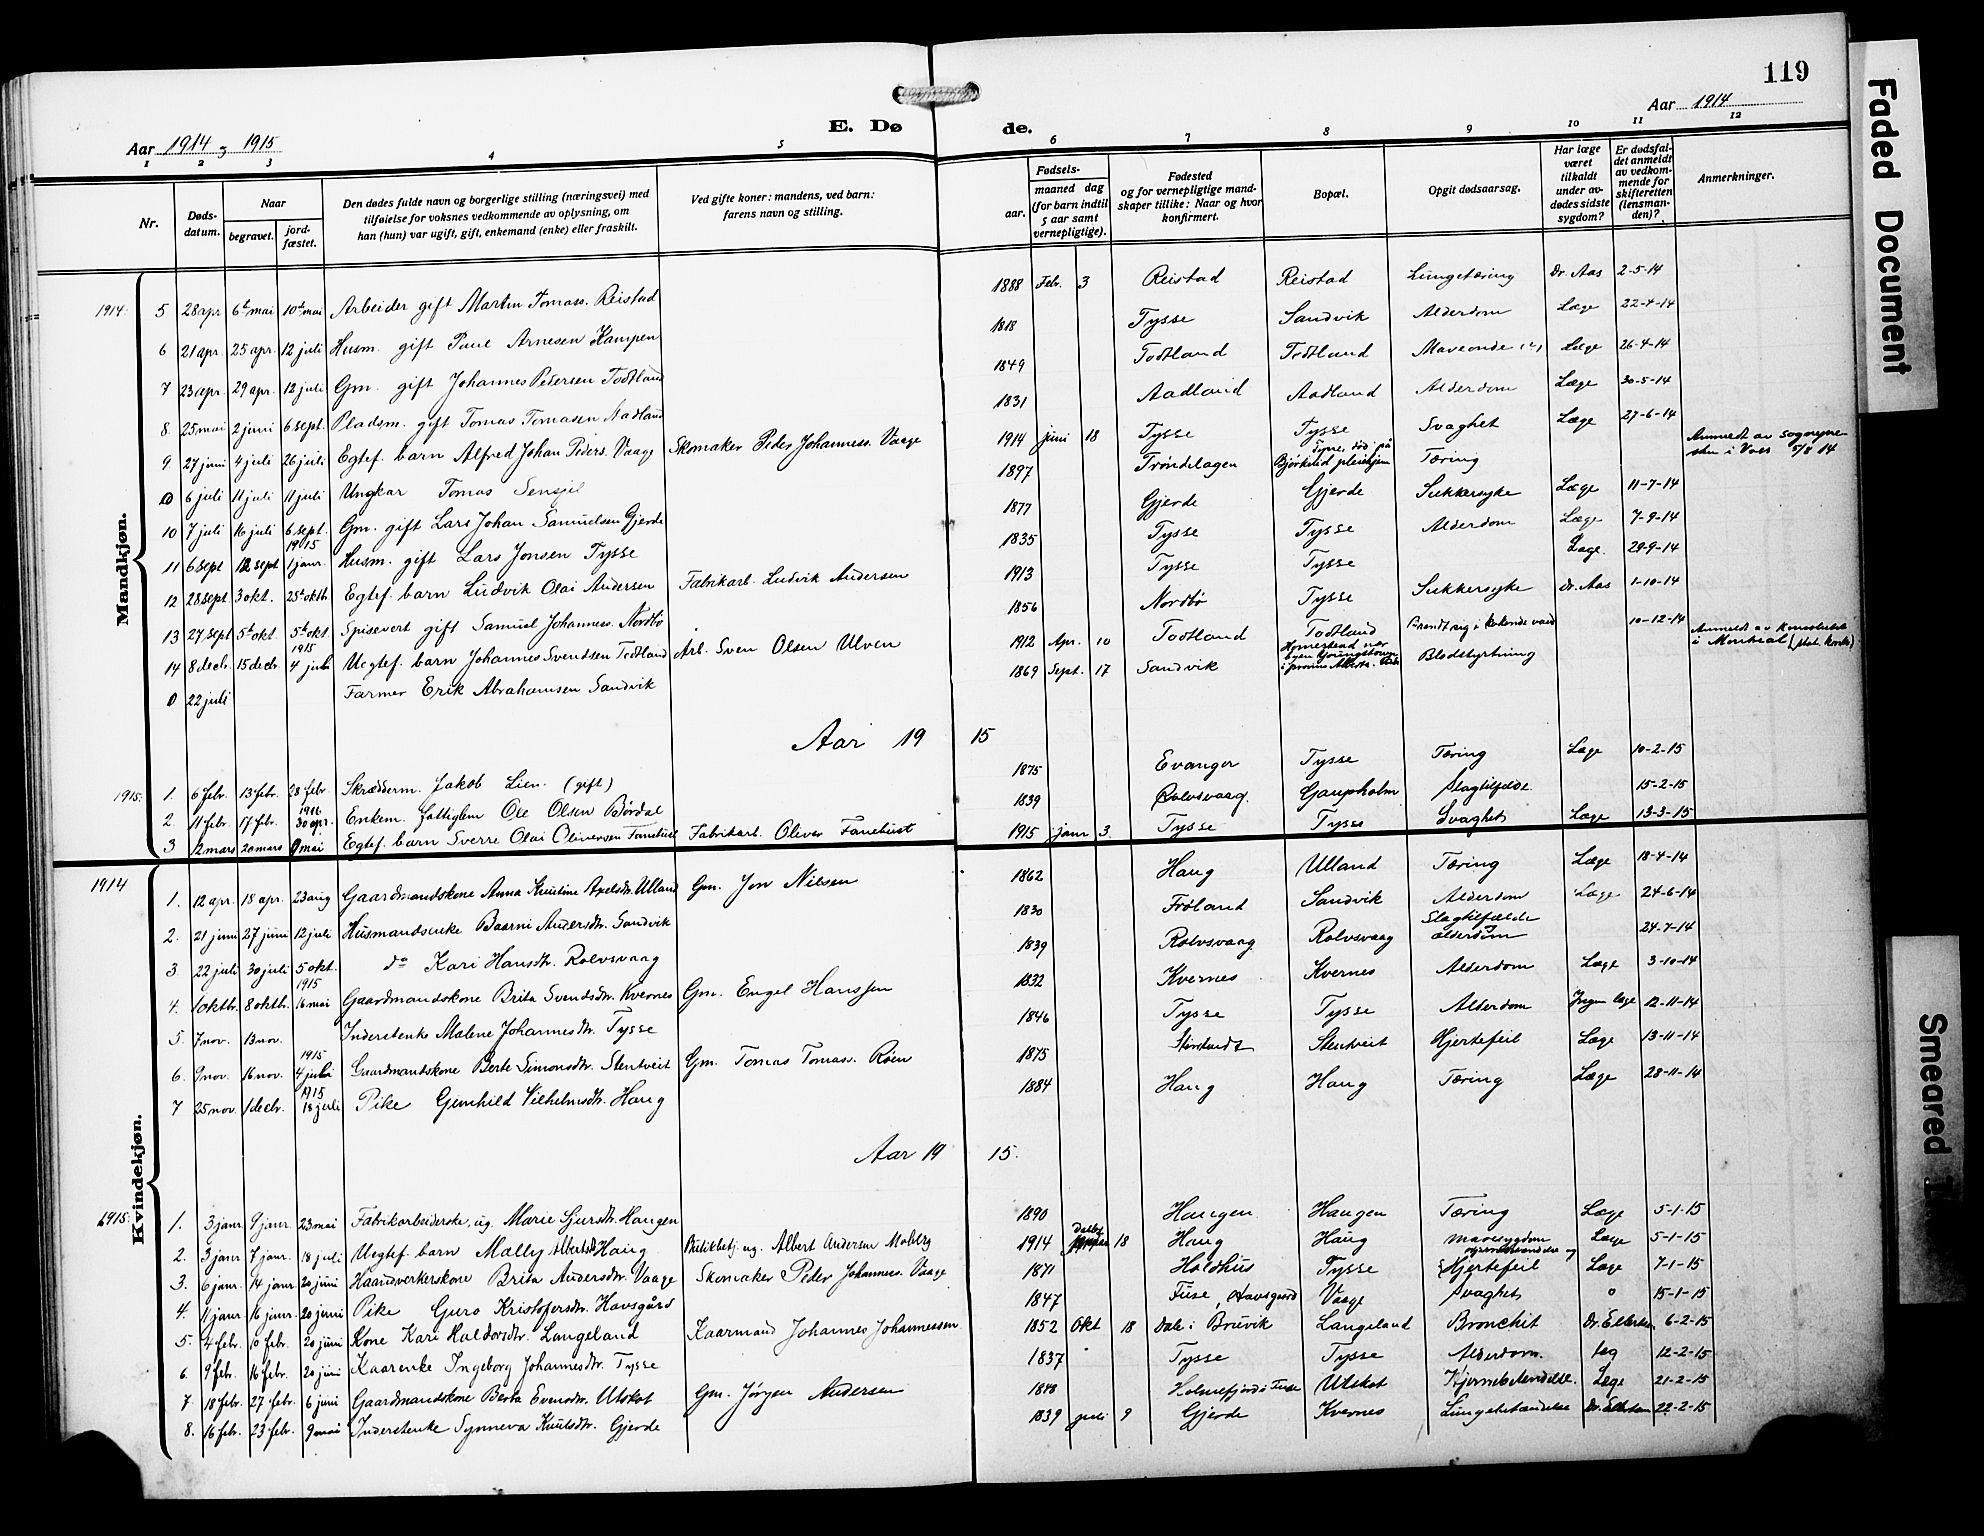 119
Aar 1914 og 1915
E. Døde.
Aar 1914
1 2 3 4 5 6 7 8 9 10 11 12
Nr.
Døds-datum.
Naar
begravet.
jord-fæstet.
Den dødes fulde navn og borgerlige stilling (næringsvei) med tilføielse for voksnes vedkommende av oplysning, om han (hun) var ugift, gift, enkemand (enke) eller fraskilt.
Ved gifte koner: mandens, ved barn: farens navn og stilling.
Fødsels-
aar.
maaned dag (for barn indtil 5 aar samt vernepligtige).
Fødested og for vernepligtige mandskaper tillike: Naar og hvor konfirmert.
Bopæl.
Opgit dødsaarsag.
Har læge været tilkaldt under avdødes sidste sygdom?
Er dødsfaldet anmeldt av vedkommende for skifteretten (lensmanden)?
Anmerkninger.
Mandkjøn.
1914: 5 28 apr 6t mai 10t mai Arbeider gift Martin Tomass. Reistad 1888 Febr. 3 Reistad Reistad Lungetæring Dr. Aas 2-5-14
6 21 apr. 25 apr. 12 juli Husm. gift Paul Arnesen Kampen 1818 Tysse Sandvik Alderdom Læge 22-4-14
7 23 apr. 29 apr. 12 juli Gm. gift Johannes Pedersen Todtland 1849 Todtland Todtland Maveonde Læge 26-4-14
8. 25 mai 2 juni 6 sept. Pladsm. gift Tomas Tomasen Aadland 1831 Aadland Aadland Alderdom Læge 30-5-14
9. 27 juni 4 juli 26 juli Egtef. barn Alfred Johan Peders. Vaage Skomaker Peder Johanness. Vaage 1914 juni 18 Tysse Tysse Svaghet Læge 27-6-14
0 6 juli 11 juli 11 juli Ungkar Tomas 1897 Trøndelagen død på Bjørkelid pleiehjem Tæring Anmeldt av i Voss 5/8 14
10 7 juli 16 juli 6 sept. Gm. gift Lars Johan Samuelsen Gjerde 1877 Gjerde Gjerde Sukkersyke Læge 11-7-14
11 6 sept 12 sept 1915 1 janr. Husm. gift Lars Jonsen Tysse 1835 Tysse Tysse Alderdom Læge 7-9-14
12 28 sept 3 okt. 25t oktb. Egtef. barn Ludvik Olai Andersen Fabrikarb. Ludvik Andersen 1913 Tysse Tysse Læge. 29-9-14
13 27 sept 5t okt. 5t okt. Spisevert gift Samuel Johanness. Nordbø 1856 Nordbø Tysse Sukkersyke Dr. Aas 1-10-14
14 8 decb. 15 decb 1915 4 juli Uegtef. barn Johannes Svendsen Todtland Arb. Sven Olsen Ulven 1912 Apr. 10 Todtland Todtland Brendt seg i kokende vand 10-12-14
0 22 juli Farmer Erik Abrahamsen Sandvik 1869 Sept. 17 Sandvik Homestead nær byen Youngstown i provins Alberta Blodstyrtning Anmeldt av Konsulatet i Montreal
Aar 1915
1915: 1. 6 febr. 13 febr. 28 febr. Skrædderm. Jakob Lien. (gift) 1875 Evanger Tysse Tæring Læge 10-2-15
2. 11 febr. 17 febr. 1916 30 apr. Enkem. fattiglem Ole Olsen Børdal 1839 Rolvsvaag. Gaupholm Slagtilfelde. 15-2-15
3 12 mars 20 mars 9 mai Egtef. barn Sverre Olai Oliversen Fanehust Fabrikarb. Oliver Fanehust 1915 janr 3 Tysse Tysse Svaghet Læge 13-3-15
Kvindekjøn.
1914 1. 12 apr. 18 apr. 23 aug Gaardmandskone Anna Kristine Axelsdtr. Ulland Gm. Jon Nilsen 1862 Haug Ulland Tæring Læge 18-4-14
2. 21 juni 27 juni 12 juli Husmandsenke Baarni Andersdtr. Sandvik 1830 Frøland Sandvik Alderdom Læge 24-6-14
3 22 juli 30 juli 5 okt. do Kari Hansdtr. Rolvsvaag 1839 Rolvsvaag Rolvsvaag Slagtilfælde og alderdom 24-7-14
4. 1 oktbr. 8 oktbr. 1915 16 mai Gaardmandskone Brita Svendsdtr. Kvernes Gm. Engel Hanssen 1832 Kvernes Kvernes Alderdom Læge 3-10-14
5. 7 nov. 13 nov. Inderstenke Malene Johannesdtr. Tysse 1846 Tysse Tysse Alderdom Ingen læge 12-11-14
6. 9 nov. 16 nov. 1915 4 juli Gaardmandskone Berte Simonsdtr. Stentveit Gm. Tomas Tomass. Røen 1875 Stentveit Hjertefeil Læge 13-11-14
7 25 nov. 1 decbr. 1915 18 juli Pike Gunhild Vilhelmsdtr. Haug 1884 Haug Haug Tæring Læge 28-11-14
Aar 1915.
1915: 1. 3 janr 9 janr. 23 mai Fabrikarbeiderske, ug. Marie Sjursdtr. Haugen 1890 Haugen Haugen Tæring Læge 5-1-15
2. 3 janr 7 janr. 18 juli Uegtef. barn Mally Albertsdtr Haug Butikbetj. ug. Albert Andersen Moberg 1914 18 Haug Haug Mavesygdom Læge 5-1-15
3. 6 janr. 14 janr 20 juni Haandverkerskone Brita Andersdtr. Vaage Skomaker Peder Johanness. Vaage 1871 Holdhus Tysse og Hjertefeil Læge 7-1-15
4. 11 janr 16 janr. 20 juni Pike Guro Kristofersdtr. Havsgård 1847 Fuse, Havsgaard Vaage Svaghet 15-1-15
5. 4 febr. 10 febr. 20 juni Kone Kari Haldorsdtr. Langeland Kaarmand Johannes Johannessen 1852 Okt 18 Dale i Bruvik Langeland Bronchit 6-2-15
6. 9 febr. 16 febr. 20 juni Kaarenke Ingeborg Johannesdtr. Tysse 1837 Tysse Tysse Alderdom. 12-2-15
7. 18 febr. 27 febr. 6 juni Gaardmandskone Berta Evensdtr. Utskot Gm. Jørgen Andersen 1848 Holmefjord i Fuse Utskot Læge 21-2-15
8. 16 febr. 23 febr. 9 mai Inderstenke Synneva Knutsdtr. Gjerde 1839 juli 9 Gjerde Kvernes Lungebetændelse 22-2-15
Faded Document
Smeared